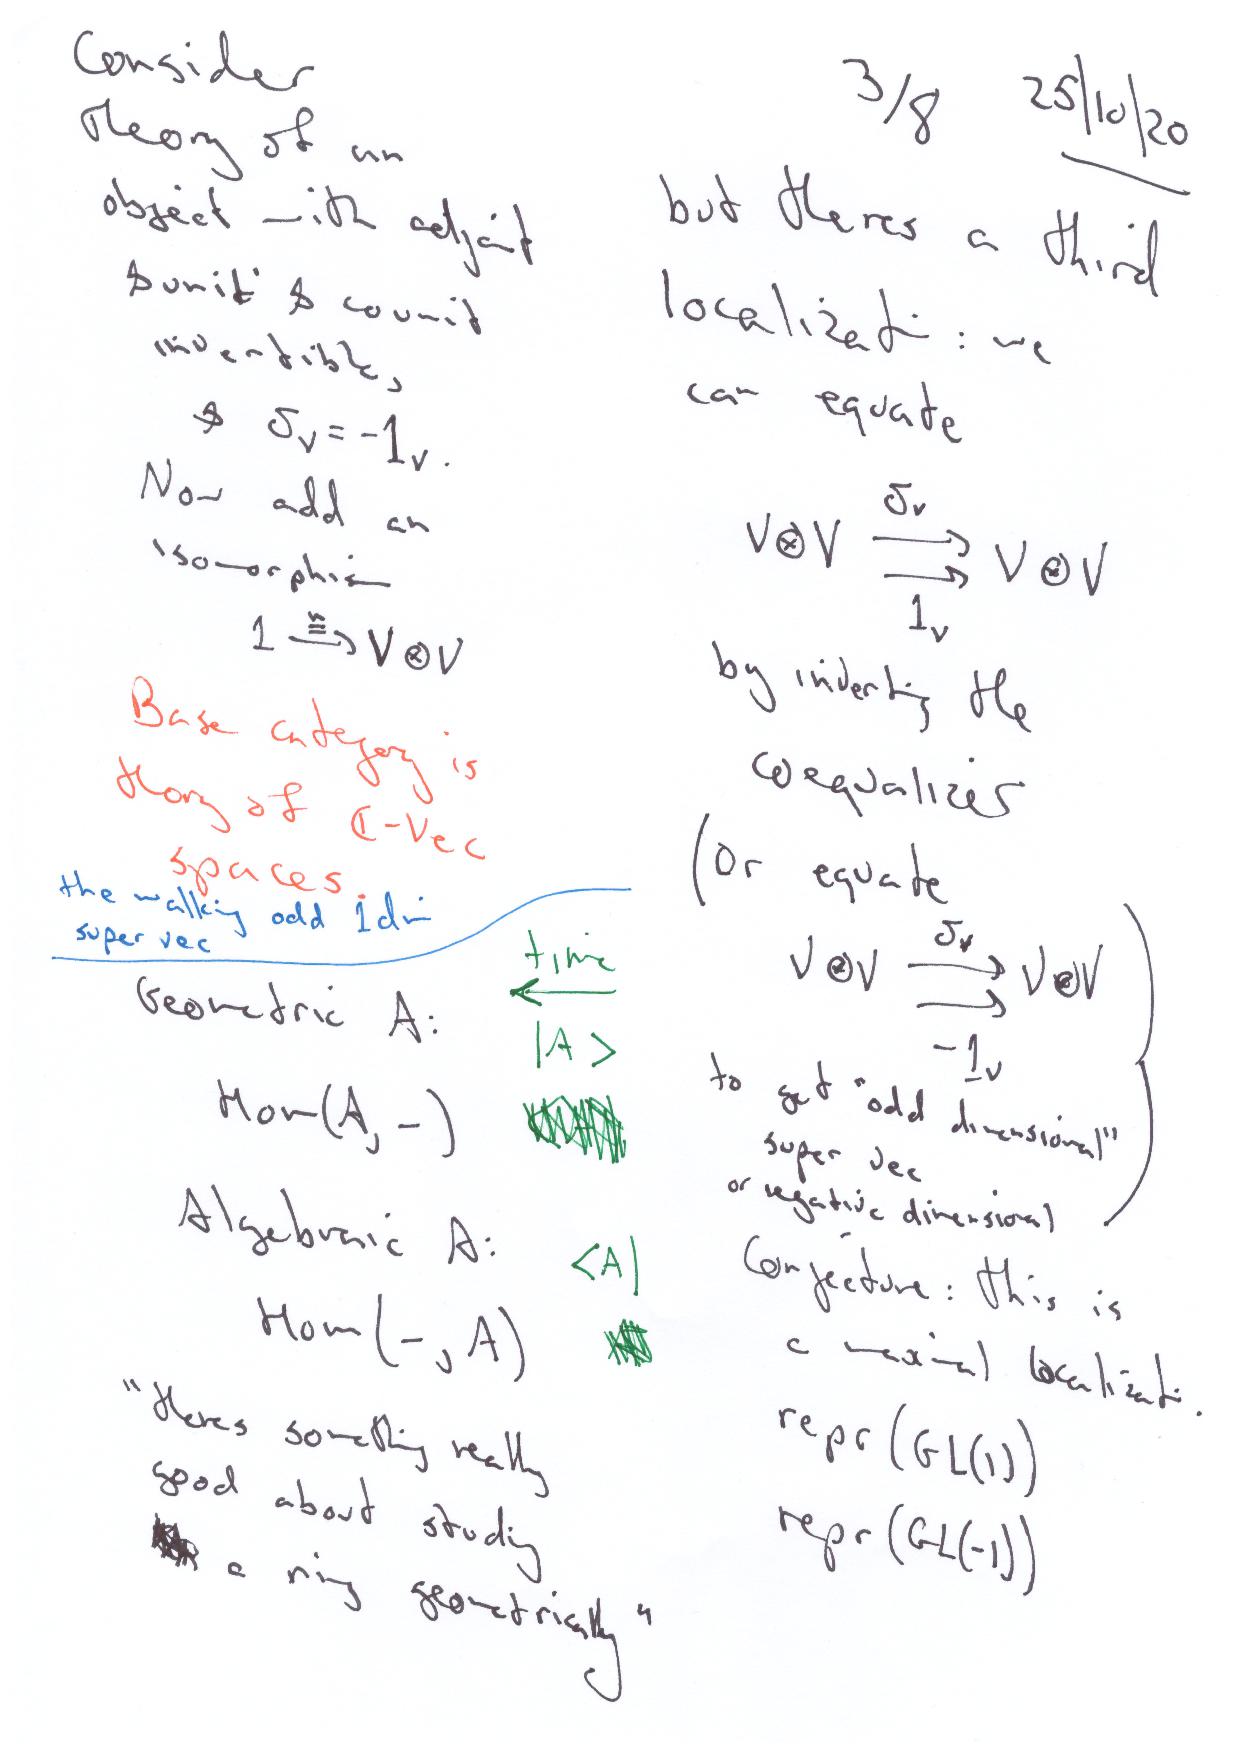 Consider
theory of an
object with adjoint
& unit & counit
invertible,
& σ_V = -1_V.
Now add an
isomorphism
1 ≅→ V⊗V
Base category is
theory of ℂ-Vec
spaces.
the walking odd 1dim
super vec
Geometric A:
Hom(A, -)
Algebraic A:
Hom(-, A)
"theres something really
good about studying
a ring geometrically"
time
←
|A >
<A|
3/8 25/10/20
but theres a third
localization: we
can equate
σ_V
V⊗V ⇉ V⊗V
1_V
by inverting the
coequalizer
(Or equate
σ_V
V⊗V ⇉ V⊗V
-1_V
to get "odd dimensional"
super vec
or negative dimensional)
Conjecture: this is
a maximal localization.
repr(GL(1))
repr(GL(-1))